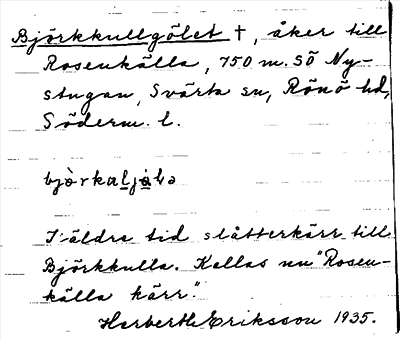 Björkkullgölet †, åker till
Rosenkälla, 750 m. SÖ Ny-
stugan, Svärta sn, Rönö hd,
Söderm. l.
I äldre tid slåtterkärr till
Björkkulla. Kallas nu "Rosen-
källa kärr".
Herberth Eriksson 1935.